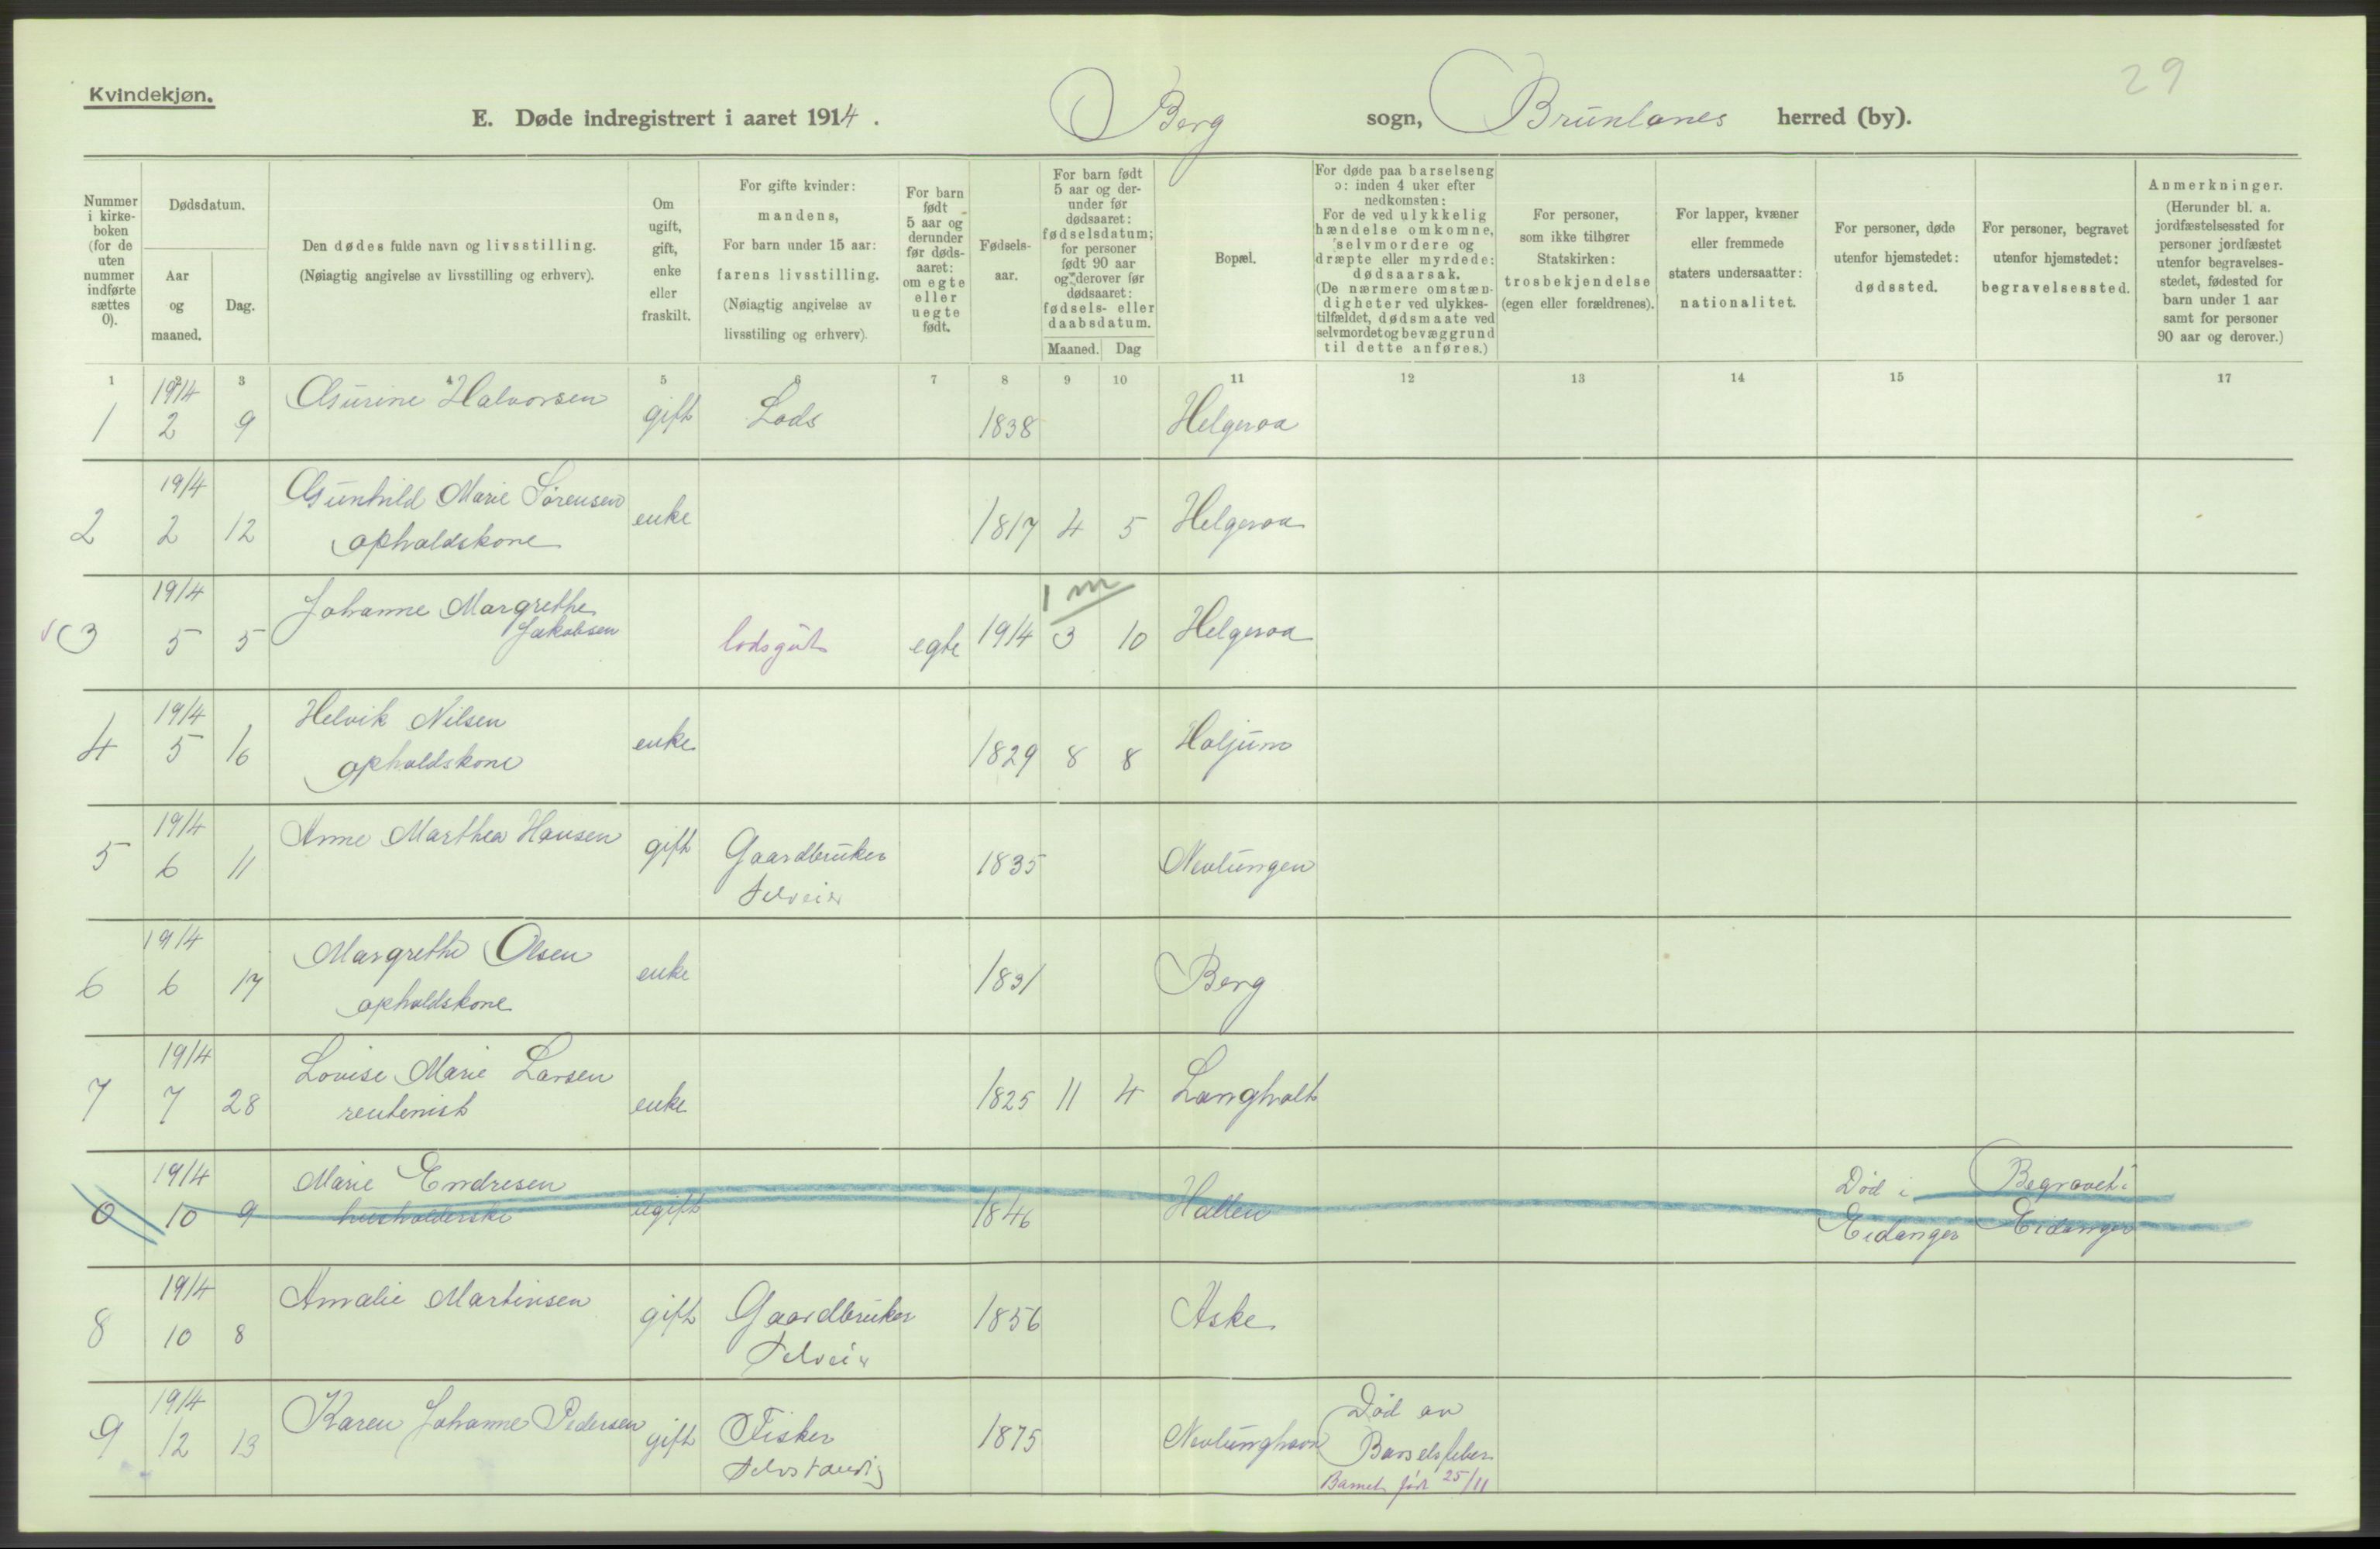 29
Kvindekjøn.
E. Døde indregistrert i aaret 1914. Berg sogn, Brunlanes herred (by).
Nummer i kirkeboken (for de uten nummer indførte sættes 0).
Dødsdatum.
Aar og maaned.
Dag.
Den dødes fulde navn og livsstilling.
(Nøiagtig angivelse av livsstilling og erhverv).
Om ugift, gift, enke eller fraskilt.
For gifte kvinder: mandens,
For barn under 15 aar: farens livsstilling.
(Nøiagtig angivelse av livsstiling og erhverv).
For barn født 5 aar og derunder før dødsaaret: om egte eller uegte født.
Fødselsaar.
For barn født 5 aar og derunder før dødsaaret: fødselsdatum; for personer født 90 aar og derover før dødsaaret: fødsels- eller daabsdatum.
Maaned. Dag
Bopæl.
For døde paa barselseng ɔ: inden 4 uker efter nedkomsten:
For de ved ulykkelig hændelse omkomne, selvmordere og dræpte eller myrdede: dødsaarsak.
(De nærmere omstændigheter ved ulykkestilfældet, dødsmaate ved selvmordet og bevæggrund til dette anføres.)
For personer, som ikke tilhører Statskirken: trosbekjendelse (egen eller forældrenes).
For lapper, kvæner eller fremmede staters undersaatter: nationalitet.
For personer, døde utenfor hjemstedet: dødssted.
For personer, begravet utenfor hjemstedet: begravelsessted.
Anmerkninger.
(Herunder bl. a. jordfæstelsessted for personer jordfæstet utenfor begravelsesstedet, fødested for barn under 1 aar samt for personer 90 aar og derover.)
1 2 3 4 5 6 7 8 9 10 11 12 13 14 15 17
1 1914 2 9 Gurine Halvorsen gift Lods 1838 Helgeroa
2 1914 2 12 Gunhild Marie Sörensen enke 1817 4 5 Helgeroa
opholdskone
1 m
3 1914 5 5 Johanne Margrethe
Jakobsen lodsgut egte 1914 3 10 Helgeroa
4 1914 5 16 Helvik Nilsen enke 1829 8 8 Haljum
opholdskone
5 1914 6 11 Anne Marthea Hansen gift Gaardbruker 1835 Nevlungen
Selveier
6 1914 6 17 Margrethe Olsen enke 1831 Berg
opholdskone
7 1914 7 28 Lovise Marie Larsen enke 1825 11 4 Langholt
rentenist
0 1914 10 9 Marie Endresen ugift 1846 Hallen Död i Begravet i
husholderske Eidanger Eidanger
8 1914 10 8 Amalie Martinsen gift Gaardbruker 1856 Aske
Selveier
9 1914 12 13 Karen Johanne Pedersen gift Fisker 1875 Nevlunghavn Död av
Selvstændig Barselsfeber
Barnet født 25/11